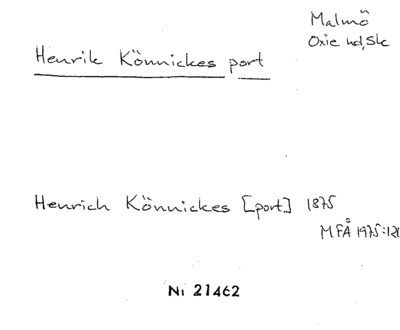 Malmö
Oxie hd, Sk
Henrik Könnickes port
Henrich Könnickes [port] 1875
MFÅ 1975:121
Ni 21462